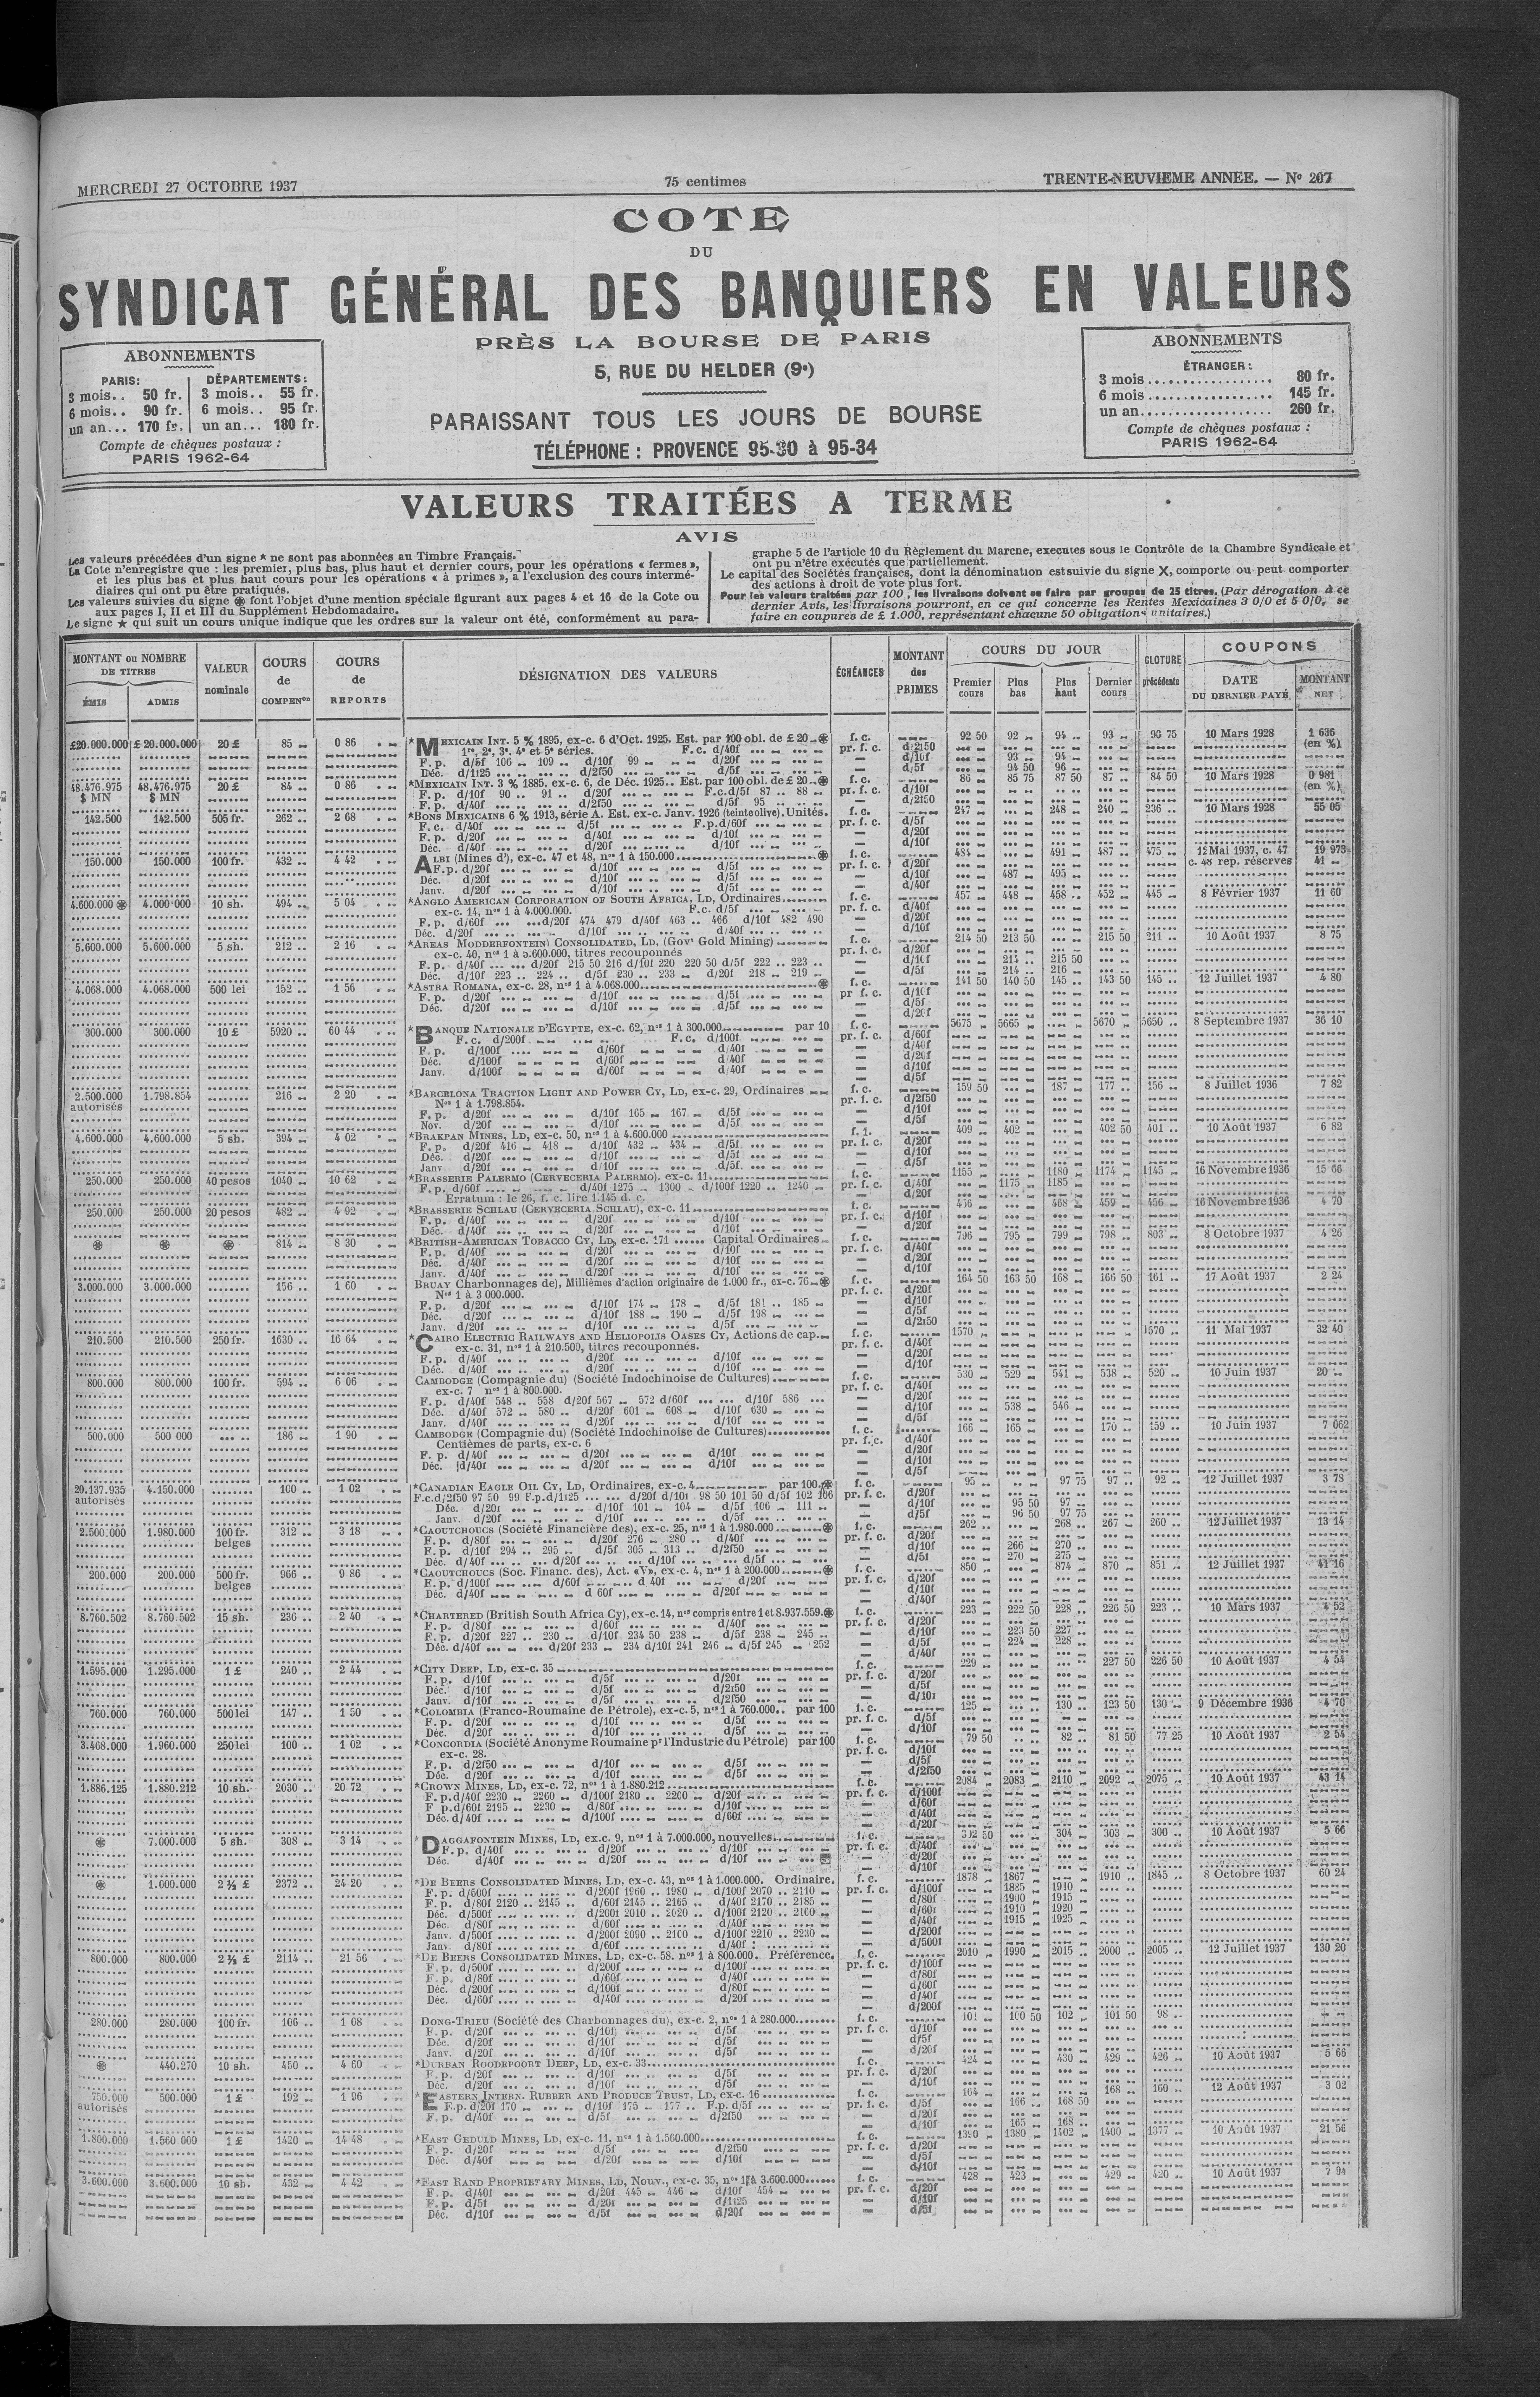 MERCREDI 27 OCTOBRE 1937
75 centimes
TRENTE-NEUVIEME ANNEE. — No 207
COTE
DU
SYNDICAT GÉNÉRAL DES BANQUIERS EN VALEURS
PRÈS LA BOURSE DE PARIS
5, RUE DU HELDER (9e)
PARAISSANT TOUS LES JOURS DE BOURSE
TÉLÉPHONE : PROVENCE 95-30 à 95-34
ABONNEMENTS
PARIS: DÉPARTEMENTS:
3 mois.. 50 fr. 3 mois.. 55 fr.
6 mois.. 90 fr. 6 mois.. 95 fr.
un an... 170 fr. un an... 180 fr.
Compte de chèques postaux :
PARIS 1962-64
ABONNEMENTS
ÉTRANGER :
3 mois.................. 80 fr.
6 mois.................. 145 fr.
un an................... 260 fr.
Compte de chèques postaux :
PARIS 1962-64
VALEURS TRAITÉES A TERME
AVIS
Les valeurs précédées d'un signe * ne sont pas abonnées au Timbre Français.
La Cote n'enregistre que : les premier, plus bas, plus haut et dernier cours, pour les opérations « fermes »,
et les plus bas et plus haut cours pour les opérations « à primes », a l'exclusion des cours intermé-
diaires qui ont pu être pratiqués.
Les valeurs suivies du signe ⊛ font l'objet d'une mention spéciale figurant aux pages 4 et 16 de la Cote ou
aux pages I, II et III du Supplément Hebdomadaire.
Le signe ★ qui suit un cours unique indique que les ordres sur la valeur ont été, conformément au para-
graphe 5 de l'article 10 du Règlement du Marche, executes sous le Contrôle de la Chambre Syndicale et
ont pu n'être exécutés que partiellement.
Le capital des Sociétés françaises, dont la dénomination est suivie du signe X, comporte ou peut comporter
des actions à droit de vote plus fort.
Pour les valeurs traitées par 100, les livraisons doivent se faire par groupes de 25 titres. (Par dérogation à ce
dernier Avis, les livraisons pourront, en ce qui concerne les Rentes Mexicaines 3 0/0 et 5 0/0, se
faire en coupures de £ 1.000, représentant chacune 50 obligations unitaires.)
MONTANT ou NOMBRE DE TITRES
ÉMIS ADMIS
VALEUR nominale
COURS de COMPENon
COURS de REPORTS
DÉSIGNATION DES VALEURS
ÉCHÉANCES
MONTANT des PRIMES
COURS DU JOUR
Premier cours Plus bas Plus haut Dernier cours
CLOTURE précédente
COUPONS
DATE DU DERNIER PAYÉ
MONTANT NET
£20.000.000 £ 20.000.000 20 £ 85 0 86 *MEXICAIN INT. 5 % 1895, ex-c. 6 d'Oct. 1925. Est. par 100 obl. de £ 20 ⊛ 92 50 92 94 93 96 75 10 Mars 1928 1 636
1re, 2e, 3e, 4e et 5e séries. F.c. d/40f pr. f. c. d/2f50 (en %)
F. p. d/5f 106 109 d/10f 99 d/20f — d/10f 93 94
Déc. d/1f25 d/2f50 d/5f — d/5f 94 50 96
48.476.975 48.476.975 20 £ 84 0 86 *MEXICAIN INT. 3 % 1885, ex-c. 6, de Déc. 1925.. Est. par 100 obl. de £ 20 ⊛ f. c. 86 85 75 87 50 87 84 50 10 Mars 1928 0 981
$ MN $ MN F. p. d/10f 90 91 d/20f F.c.d/5f 87 88 pr. f. c. d/10f (en %)
F. p. d/40f d/2f50 d/5f 95 — d/2f50
142.500 142.500 505 fr. 262 2 68 *BONS MEXICAINS 6 % 1913, série A. Est. ex-c. Janv. 1926 (teinte olive). Unités. f. c. 247 248 240 236 10 Mars 1928 55 05
F. c. d/40f d/5f F.p.d/60f pr. f. c. d/5f
F. p. d/20f d/40f d/10f — d/20f
Déc. d/40f d/20f d/10f — d/10f
150.000 150.000 100 fr. 432 4 42 ALBI (Mines d'), ex-c. 47 et 48, nos 1 à 150.000 ⊛ f. c. 484 491 487 475 12 Mai 1937, c. 47 19 973
F.p. d/20f d/10f d/5f pr. f. c. d/20f c. 48 rep. réserves 41
Déc. d/20f d/10f d/5f — d/10f 487 495
Janv. d/20f d/10f d/5f — d/40f
4.600.000 ⊛ 4.000.000 10 sh. 494 5 04 *ANGLO AMERICAN CORPORATION OF SOUTH AFRICA, LD, Ordinaires f. c. 457 448 458 452 445 8 Février 1937 11 60
ex-c. 14, nos 1 à 4.000.000. F.c. d/5f pr. f. c. d/40f
F. p. d/60f d/20f 474 479 d/40f 463 466 d/10f 482 490 — d/20f
Déc. d/20f d/10f d/40f — d/10f
5.600.000 5.600.000 5 sh. 212 2 16 *AREAS MODDERFONTEIN CONSOLIDATED, LD, (Govt Gold Mining) f. c. 214 50 213 50 215 50 211 10 Août 1937 8 75
ex-c. 40, nos 1 à 5.600.000, titres recouponnés pr. f. c. d/20f
F. p. d/40f d/20f 215 50 216 d/10f 220 220 50 d/5f 222 223 — d/10f 214 215 50
Déc. d/10f 223 224 d/5f 230 233 d/20f 218 219 — d/5f 214 216
4.068.000 4.068.000 500 lei 152 1 56 *ASTRA ROMANA, ex-c. 28, nos 1 à 4.068.000 ⊛ f. c. 141 50 140 50 145 143 50 145 12 Juillet 1937 4 80
F. p. d/20f d/10f d/5f pr. f. c. d/10f
Déc. d/20f d/10f d/5f — d/5f
— d/20f
300.000 300.000 10 £ 5920 60 44 *BANQUE NATIONALE D'EGYPTE, ex-c. 62, nos 1 à 300.000 par 10 f. c. 5675 5665 5670 5650 8 Septembre 1937 36 10
F. c. d/200f F. c. d/100f pr. f. c. d/60f
F. p. d/100f d/60f d/40f — d/40f
Déc. d/100f d/60f d/40f — d/20f
Janv. d/100f d/60f d/40f — d/10f
— d/5f
2.500.000 1.798.854 216 2 20 *BARCELONA TRACTION LIGHT AND POWER CY, LD, ex-c. 29, Ordinaires f. c. 159 50 187 177 156 8 Juillet 1936 7 82
autorisés Nos 1 à 1.798.854. pr. f. c. d/2f50
F. p. d/20f d/10f 165 167 d/5f — d/10f
Nov. d/20f d/10f d/5f — d/5f
4.600.000 4.600.000 5 sh. 394 4 02 *BRAKPAN MINES, LD, ex-c. 50, nos 1 à 4.600.000 409 402 402 50 401 10 Août 1937 6 82
F. p. d/20f 416 418 d/10f 432 434 d/5f pr. f. c. d/20f
Déc. d/20f d/10f d/5f — d/10f
Janv d/20f d/10f d/5f — d/5f
250.000 250.000 40 pesos 1040 10 62 *BRASSERIE PALERMO (CERVECERIA PALERMO). ex-c. 11 f. c. 1155 1180 1174 1145 16 Novembre 1936 15 66
F. p. d/60f d/40f 1275 1300 d/100f 1220 1240 pr. f. c. d/40f 1175 1185
Erratum : le 26, f. c. lire 1.145 d. c. — d/20f
250.000 250.000 20 pesos 482 4 92 *BRASSERIE SCHLAU (CERVECERIA SCHLAU), ex-c. 11 f. c. 456 468 459 456 16 Novembre 1936 4 70
F. p. d/40f d/20f d/10f pr. f. c. d/10f
Déc. d/40f d/20f d/10f — d/20f
⊛ ⊛ ⊛ 814 8 30 *BRITISH-AMERICAN TOBACCO CY, LD, ex-c. 171 Capital Ordinaires f. c. 796 795 799 798 803 8 Octobre 1937 4 26
F. p. d/40f d/20f d/10f pr. f. c. d/40f
Déc. d/40f d/20f d/10f — d/20f
Janv. d/40f d/20f d/10f — d/10f
3.000.000 3.000.000 156 1 60 BRUAY Charbonnages de), Millièmes d'action originaire de 1.000 fr., ex-c. 76 ⊛ f. c. 164 50 163 50 168 166 50 161 17 Août 1937 2 24
Nos 1 à 3 000.000. pr. f. c. d/20f
F. p. d/20f d/10f 174 178 d/5f 181 185 — d/10f
Déc. d/20f d/10f 188 190 d/5f 198 — d/5f
Janv. d/20f d/10f d/5f — d/2f50
210.500 210.500 250 fr. 1630 16 64 *CAIRO ELECTRIC RAILWAYS AND HELIOPOLIS OASES CY, Actions de cap. f. c. 1570 1570 11 Mai 1937 32 40
ex-c. 31, nos 1 à 210.500, titres recouponnés. pr. f. c. d/40f
F. p. d/40f d/20f d/10f — d/20f
Déc. d/40f d/20f d/10f — d/10f
800.000 800.000 100 fr. 594 6 06 CAMBODGE (Compagnie du) (Société Indochinoise de Cultures) f. c. 530 529 541 538 520 10 Juin 1937 20
ex-c. 7 nos 1 à 800.000. pr. f. c. d/40f
F. p. d/40f 548 558 d/20f 567 572 d/60f d/10f 586 — d/20f
Déc. d/40f 572 580 d/20f 601 608 d/10f 630 — d/10f 538 546
Janv. d/40f d/20f d/10f — d/5f
500.000 500 000 186 1 90 CAMBODGE (Compagnie du) (Société Indochinoise de Cultures) f. c. 166 165 170 159 10 Juin 1937 7 062
Centièmes de parts, ex-c. 6 pr. f. c. d/40f
F. p. d/40f d/20f d/10f — d/20f
Déc. d/40f d/20f d/10f — d/10f
— d/5f
20.137.935 4.150.000 100 1 02 *CANADIAN EAGLE OIL CY, LD, Ordinaires, ex-c. 4 par 100 ⊛ f. c. 95 97 75 97 92 12 Juillet 1937 3 78
autorisés F.c.d/2f50 97 50 99 F.p.d/1f25 d/20f d/10f 98 50 101 50 d/5f 102 106 pr. f. c. d/20f
Déc. d/20f d/10f 101 104 d/5f 106 111 — d/10f 95 50 97
Janv. d/20f d/10f d/5f — d/5f 96 50 97 75
2.500.000 1.980.000 100 fr. 312 3 18 *CAOUTCHOUCS (Société Financière des), ex-c. 25, nos 1 à 1.980.000 ⊛ f. c. 262 268 267 260 12 Juillet 1937 13 14
belges F. p. d/80f d/20f 276 280 d/40f pr. f. c. d/20f
F. p. d/10f 294 295 d/5f 305 313 d/2f50 — d/10f 266 270
Déc. d/40f d/20f d/10f d/5f — d/5f 270 275
200.000 200.000 500 fr. 966 9 86 *CAOUTCHOUCS (Soc. Financ. des), Act. «V», ex-c. 4, nos 1 à 200.000 ⊛ f. c. 850 874 870 851 12 Juillet 1937 41 16
belges F. p. d/100f d/60f d 40f d/20f pr. f. c. d/20f
Déc. d/40f d 60f d/20f — d/10f
— d/40f
8.760.502 8.760.502 15 sh. 236 2 40 *CHARTERED (British South Africa Cy), ex-c. 14, nos compris entre 1 et 8.937.559 ⊛ f. c. 223 222 50 228 226 50 223 10 Mars 1937 4 52
F. p. d/80f d/60f d/40f pr. f. c. d/20f
F. p. d/20f 227 230 d/10f 234 50 238 d/5f 238 245 — d/10f 223 50 227
Déc. d/40f d/20f 233 234 d/10f 241 246 d/5f 245 252 — d/5f 224 228
— d/40f
1.595.000 1.295.000 1 £ 240 2 44 *CITY DEEP, LD, ex-c. 35 f. c. 229 227 50 226 50 10 Août 1937 4 54
F. p. d/10f d/5f d/20f pr. f. c. d/20f
Déc. d/10f d/5f d/2f50 — d/5f
Janv. d/10f d/5f d/2f50 — d/10f
760.000 760.000 500 lei 147 1 50 *COLOMBIA (Franco-Roumaine de Pétrole), ex-c. 5, nos 1 à 760.000.. par 100 f. c. 125 130 123 50 130 9 Décembre 1936 4 70
F. p. d/20f d/10f d/5f pr. f. c. d/5f
Déc. d/20f d/10f d/5f — d/10f
3.468.000 1.960.000 250 lei 100 1 02 *CONCORDIA (Société Anonyme Roumaine pr l'Industrie du Pétrole) par 100 f. c. 79 50 82 81 50 77 25 10 Août 1937 2 54
ex-c. 28. pr. f. c. d/10f
F. p. d/2f50 d/10f d/5f — d/5f
Déc. d/20f d/10f d/5f — d/2f50
1.886.125 1.880.212 10 sh. 2030 20 72 *CROWN MINES, LD, ex-c. 72, nos 1 à 1.880.212 f. c. 2084 2083 2110 2092 2075 10 Août 1937 43 14
F. p. d/40f 2230 2260 d/100f 2180 2200 d/20f pr. f. c. d/100f
F p. d/60f 2195 2230 d/80f d/10f — d/60f
Déc. d/40f d/100f d/60f — d/40f
— d/20f
⊛ 7.000.000 5 sh. 308 3 14 *DAGGAFONTEIN MINES, LD, ex.c. 9, nos 1 à 7.000.000, nouvelles f. c. 302 50 304 303 300 10 Août 1937 5 66
F. p. d/40f d/20f d/10f pr. f. c. d/40f
Déc. d/40f d/20f d/10f — d/20f
— d/10f
⊛ 1.000.000 2 ½ £ 2372 24 20 *DE BEERS CONSOLIDATED MINES, LD, ex-c. 43, nos 1 à 1.000.000. Ordinaire. f. c. 1878 1867 1910 1845 8 Octobre 1937 60 24
F. p. d/500f d/200f 1960 1980 d/100f 2070 2110 pr. f. c. d/100f 1885 1910
F. p. d/80f 2120 2145 d/60f 2145 2165 d/40f 2170 2185 — d/80f 1900 1915
Déc. d/500f d/200f 2010 2020 d/100f 2120 2160 — d/60f 1910 1920
Déc. d/80f d/60f d/40f — d/40f 1915 1925
Janv. d/500f d/200f 2090 2100 d/100f 2210 2230 — d/200f
Janv. d/80f d/60f d/40f — d/500f
800.000 800.000 2 ½ £ 2114 21 56 *DE BEERS CONSOLIDATED MINES, LD, ex-c. 58. nos 1 à 800.000. Préférence. f. c. 2010 1990 2015 2000 2005 12 Juillet 1937 130 20
F. p. d/500f d/200f d/100f pr. f. c. d/100f
F. p. d/80f d/60f d/40f — d/80f
Déc. d/200f d/100f d/80f — d/60f
Déc. d/60f d/40f d/20f — d/40f
— d/200f
280.000 280.000 100 fr. 106 1 08 DONG-TRIEU (Société des Charbonnages du), ex-c. 2, nos 1 à 280.000 f. c. 101 100 50 102 101 50 98
F. p. d/20f d/10f d/5f pr. f. c. d/10f
Déc. d/20f d/10f d/5f — d/5f
Janv. d/20f d/10f d/5f — d/20f
⊛ 440.270 10 sh. 450 4 60 *DURBAN ROODEPOORT DEEP, LD, ex-c. 33 f. c. 424 430 429 426 10 Août 1937 5 66
F. p. d/20f d/10f d/5f pr. f. c. d/20f
Déc. d/20f d/10f d/5f — d/10f
750.000 500.000 1 £ 192 1 96 *EASTERN INTERN. RUBBER AND PRODUCE TRUST, LD, ex-c. 16 f. c. 164 168 160 12 Août 1937 3 02
autorisés F.p. d/20f 170 d/10f 175 177 F.p. d/5f pr. f. c. d/5f 166 168 50
F. p. d/40f d/5f d/2f50 — d/20f
— d/10f 165 168
1.800.000 1.560 000 1 £ 1420 14 48 *EAST GEDULD MINES, LD, ex-c. 11, nos 1 à 1.560.000 f. c. 1390 1380 1402 1400 1377 10 Août 1937 21 56
F. p. d/20f d/5f d/2f50 pr. f. c. d/20f
Déc. d/40f d/20f d/10f — d/5f
— d/10f
3.600.000 3.600.000 10 sh. 432 4 42 *EAST RAND PROPRIETARY MINES, LD, Nouv., ex-c. 35, nos 1 à 3.600.000 f. c. 428 423 429 420 10 Août 1937 7 94
F. p. d/40f d/20f 445 446 d/10f 454 pr. f. c. d/20f
F. p. d/5f d/20f d/1f25 — d/10f
Déc. d/10f d/5f d/20f — d/5f